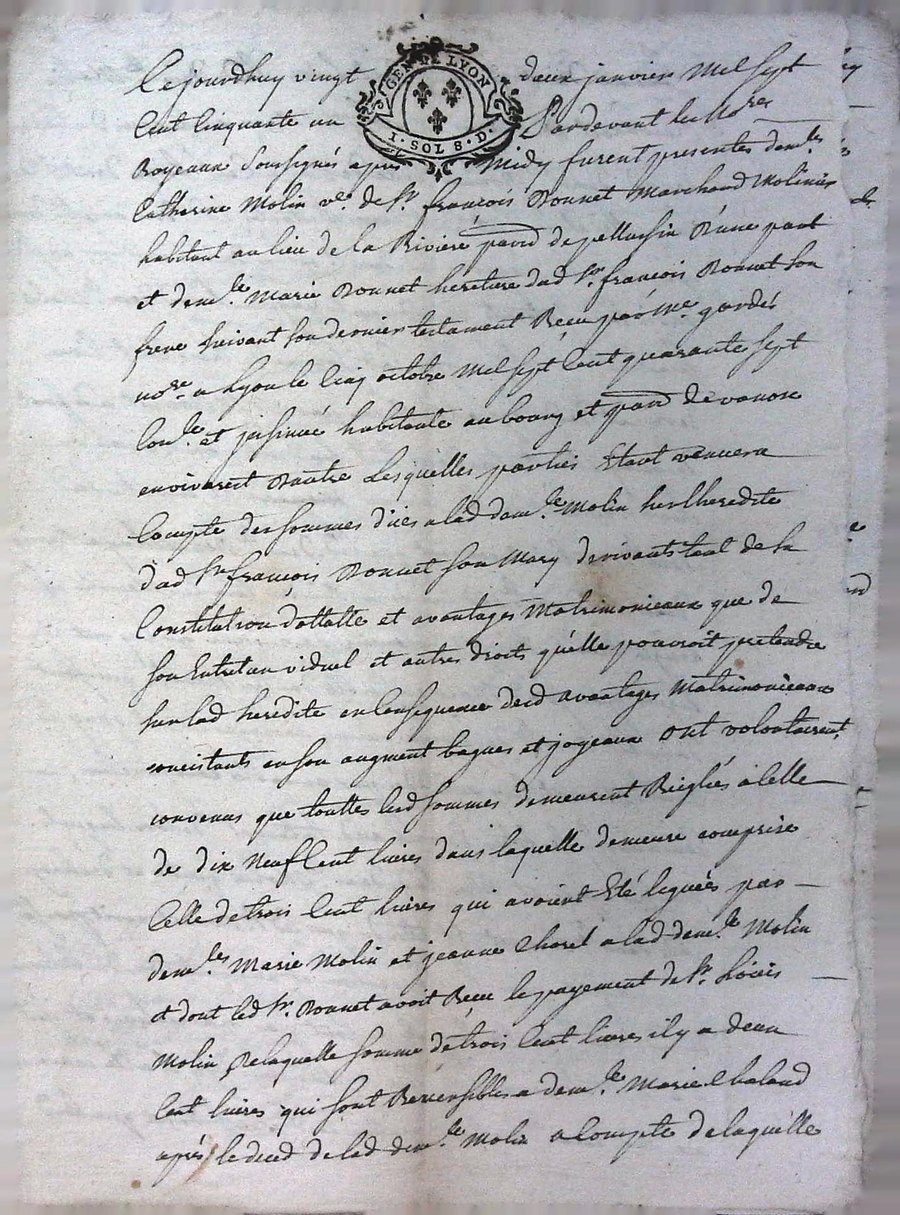 GEN. DE LYON
1 · SOL 8 · D ·
Ce jourdhuy vingt deux janvier Mil sept
Cent Cinquante un Pardevant les No.res
Royeaux soussignés apres Midy furent presentes dem.lles
Catherine Molin ve. de Sr. françois Bonnet Marchand Molinier
habitant au lieu de la Riviere parr de pellussin D'une part
et dem.lle Marie Bonnet heretiere dud Sr. françois Bonnet son
frere suivant son dernier testament Receu par Me. gardes
no.re a Lyon le Cinq octobre Mil sept Cent quarante sept
Con.lé et jnsinué habitante au bourg et parr de vanosc
en vivarest D'autre Lesquelles parties Etant venues a
Compte des sommes dües a lad dem.lle Molin sur L'heredite
dud Sr françois Bonnet son Mary derivants tant de sa
Constitution dottalle et avantages Matrimonieaux que de
son Entretan viduel et autres droits qu'elle pouvoit pretendre
sur lad heredite en Consequence desd avantages Matrimonieaux
concistants en son augment bagues et joyeaux ont volontairem.t
convenus que touttes lesd sommes demeurent Rieglés a celle
de dix neuf Cent livres dans laquelle demeure comprise
Celle de trois Cent livres qui avoient Eté leguées par
dem.lles Marie Molin et jeanne Chorel a lad dem.lle Molin
et dont led Sr. Bonnet avoit Receu le payement de Sr. Loüis
Molin De laquelle somme de trois Cent livres il y a deux
Cent livres qui sont Reversibles a dem.lle Marie Chaland
après le deced de lad dem.lle Molin a Compte de laquelle